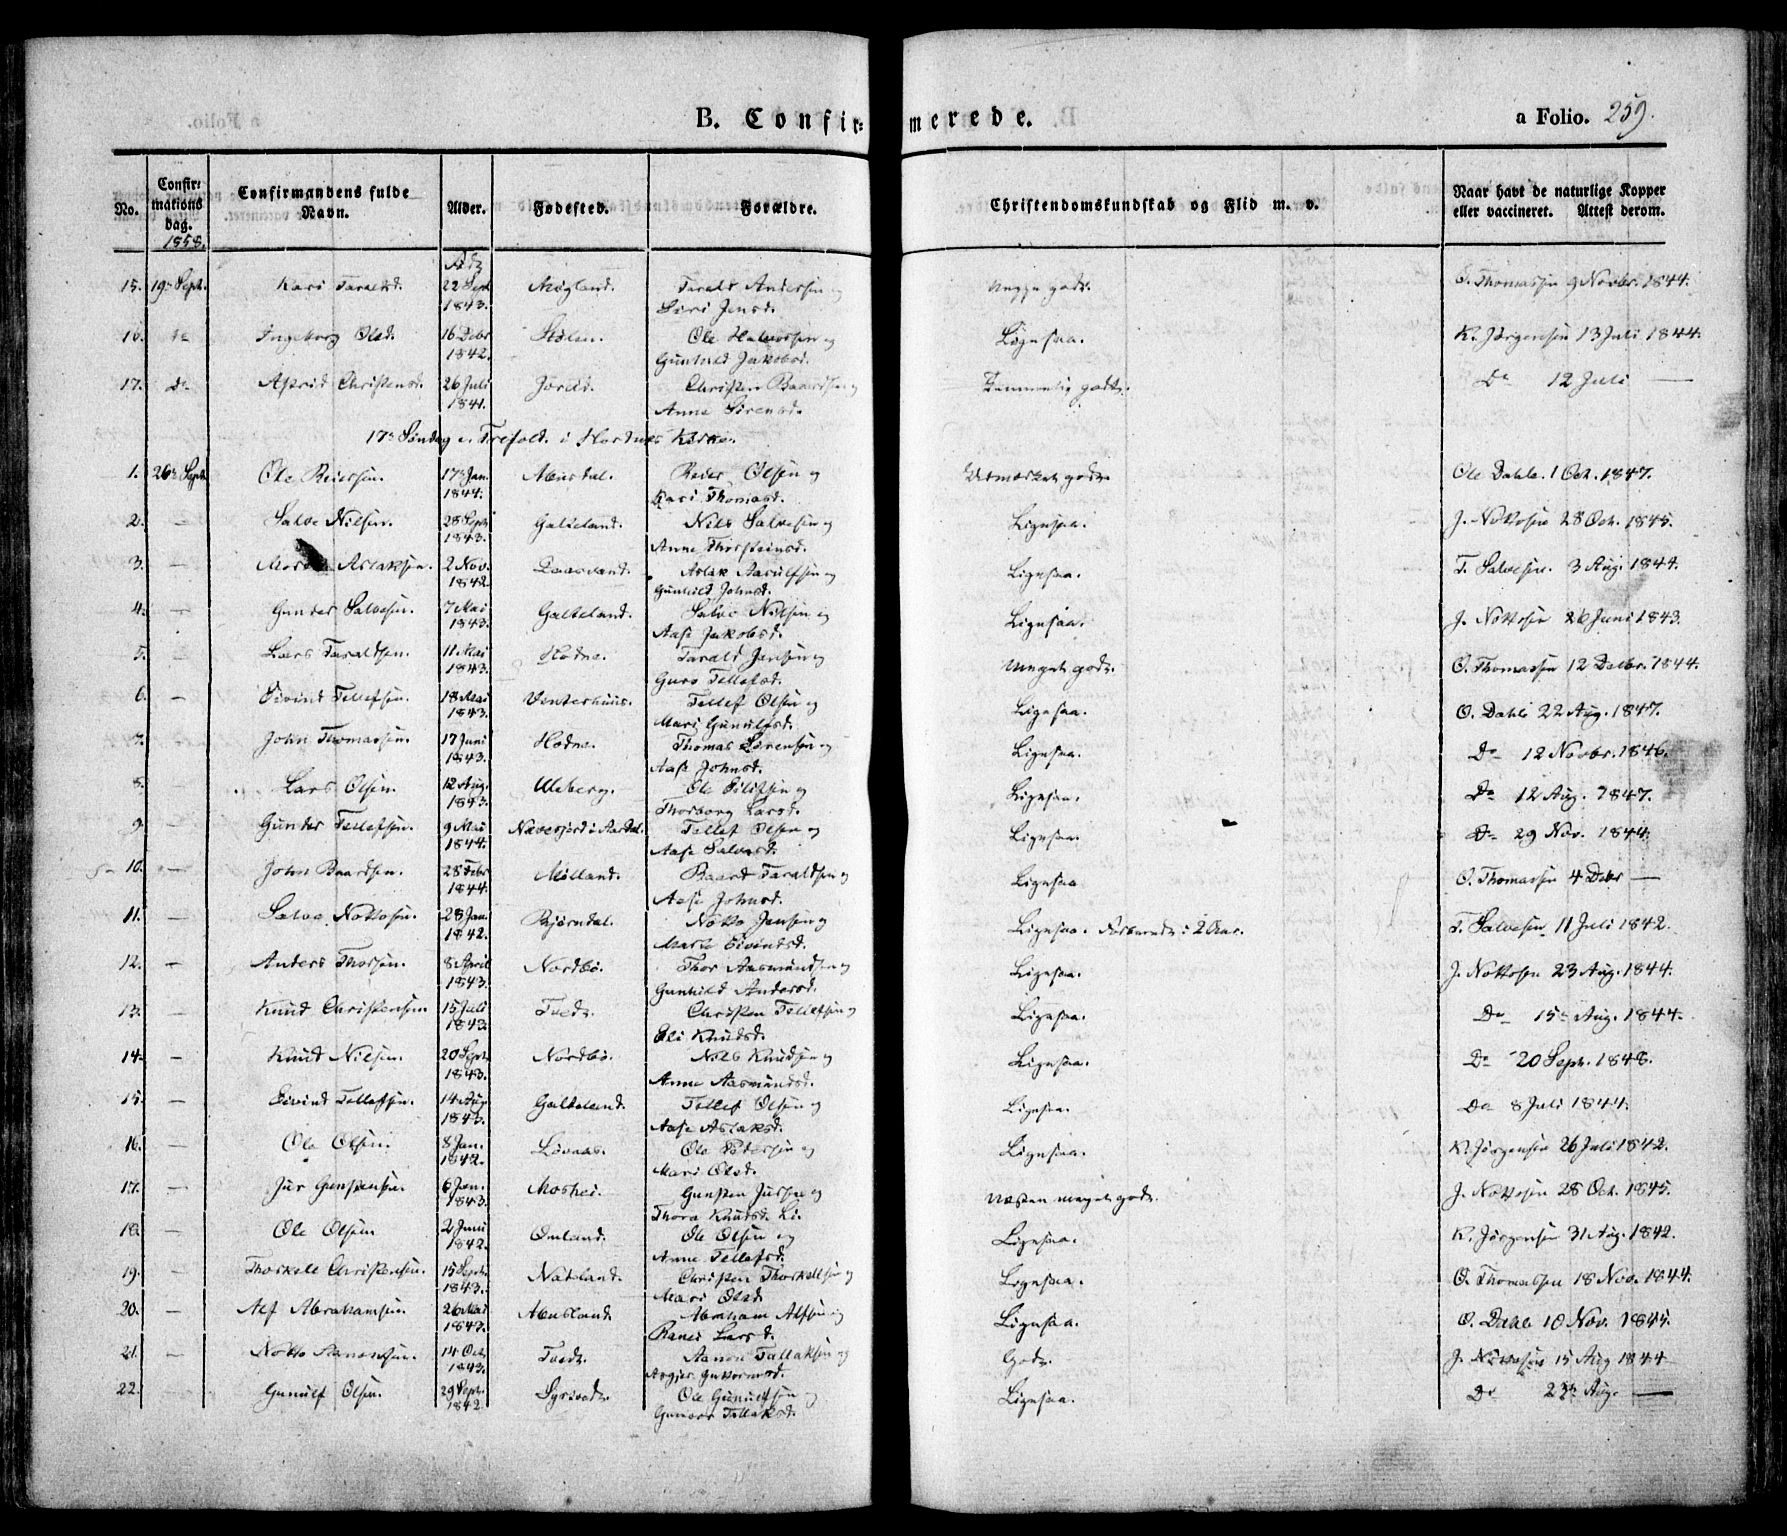 B. Confir= merede. a Folio. 259.
No. Confir= mations dag. Confirmandens fulde Navn. Alder. Fødested. Forældre. Christendomskundskab og Flid m. v. Naar havt de naturlige Kopper eller vaccineret. Attest derom.
1858.
15. 19de Septr. Kari Taraldsd. 22 Sept 1843. Møgland. Tarald Andersen og Siri Jensd. Meget godt. O. Thomassen 9 Novbr. 1844.
16. Do Ingeborg Olsd. 16 Debr 1842. Stølen. Ole Halvorsen og Gunhild Jakobsd. Ligesaa. K. Jørgensen 13 Juli 1844.
17. Do Astrid Christensd. 26 Juli 1841. Christen Baardsen og Anne Sørensd. Temmelig godt. Do 12 Juli —
17de Søndag e. Trefold. i Hordnes Kirke.
1. 26de Septr Ole Reiersen. 17de Jan. 1844. Mensdal. Reier Olsen og Kari Thomasd. Udmærket godt. Ole Dahl. 1 Oct. 1847.
2. — Salve Nilsen. 28 Sept 1843. Galteland. Nils Salvesen og Anne Thorsteinsd. Ligesaa. J. Nottosen 28 Oct. 1845.
3. — Aslaksen. 2 Nov. 1842. Aslak Aasulfsen og Gunhild Johnsd. Ligesaa. T. Salvesen. 3 Aug. 1844.
4. — Gunder Salvesen. 7 Mai 1843. Galteland. Salve Nilsen og Aase Jakobsd. Ligesaa. J. Nottosen 26 Juni 1843.
5. — Lars Taraldsen. 11 Mai 1843. Hodne. Tarald Jensen og Guro Tellefsd. Meget godt. O. Thomassen 12 Decbr. 1844.
6. — Eivind Tellefsen. 18 Mai 1843. Venterhuus. Tellef Olsen og Mari Gunulfsd. Ligesaa. O. Dahl 22 Aug. 1847.
7. — John Thomassen. 17 Juni 1843. Hodne. Thomas Sørensen og Aase Johnsd. Ligesaa. Do 12 Novbr. 1846.
8. — Lars Olsen. 12 Aug. 1843. Uleberg. Ole Eilifsen og Thorborg Larsd. Ligesaa. Do 12 Aug. 1847.
9. — Gunder Tellefsen. 9 Mai 1844. Nævesjord i Aardal. Tellef Olsen og Aase Salvesd. Ligesaa. Do 29 Nov. 1844.
10. — John Baardsen. 28 Febr 1844. Mølland. Baard Taraldsen og Aase Johnsd. Ligesaa O. Thomassen 4 Debr —
11. — Salve Nottosen. 28 Jan. 1842. Bjørndal. Notto Jensen og Eivindsd. Ligesaa. Forberedt i 2 Aar. T. Salvesen 11 Juli 1842.
12. — Anders Thorsen. 8 April 1843. Nordbø. Thor Aasmundsen og Gunhild Andersd. Ligesaa. J. Nottosen 23 Aug. 1844.
13. — Knud Christensen 15 Juli 1843. Tvedt. Christen Tellefsen og Eli Knudsd. Ligesaa. Do 15de Aug. 1844.
14. — Knud Nilsen. 20 Sept. 1843. Nordbø. Nils Knudsen og Anne Aasmundsd. Ligesaa. Do 20 Sept. 1848.
15. — Eivind Tellefsen. 14 Aug 1843. Galteland. Tellef Olsen og Aase Aslaksd. Ligesaa. Do 8 Juli 1844.
16. — Ole Olsen. 8 Jan. 1842. Løvaas. Ole Pedersen og Mari Olsd. Ligesaa. K. Jørgensen 26 Juli 1842.
17. — Jur Gunstensen. 6 Jan. 1843. Moshei. Gunsten Jursen og Thora Knudsd. Li. Næsten meget godt. J. Nottosen 28 Oct. 1845.
18. — Ole Olsen 2 Juni 1842. Omland. Ole Olsen og Anne Tellefsd. Ligesaa. K. Jørgensen 31 Aug. 1842.
19. — Thorkell Christensen. 15 Septr. 1843. Nateland. Christen Thorkellsen og Mari Olsd Ligesaa. O. Thomassen 18 Nov. 1844.
20. — Alf Abrahamsen. 26 Mai 1843. Abusland. Abraham Alfsen og Ranei Larsd. Ligesaa. O. Dahl 10 Nov. 1845.
21. — Notto Aanonsen. 14 Oct. 1843. Tvedt. Aanon Tallaksen og Asgjer Guttormsd. Godt. J. Nottosen 15 Aug 1844
22. — Gunulf Olsen. 29 Septr. 1842. Syrtvedt. Ole Gunulfsen og Gunvor Tallaksd. Ligesaa. Do Aug. —